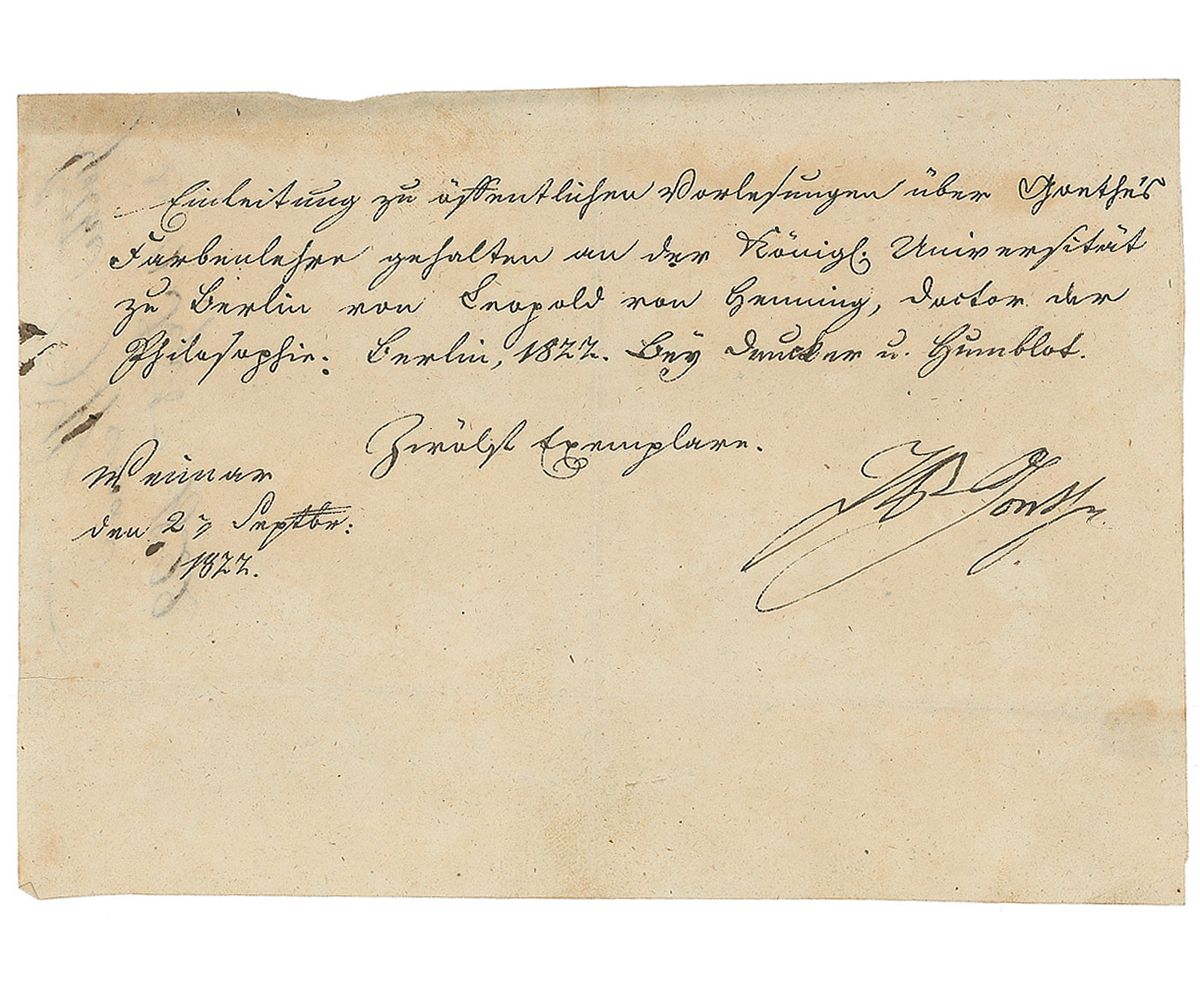 Einleitung zu öffentlichen Vorlesungen über Goethe's
Farbenlehre gehalten an der Königl. Universität
zu Berlin von Leopold von Henning, Doctor der
Philosophie. Berlin, 1822. Bey Duncker u. Humblot.
Zwölf Exemplare.
Weimar
den 2n Septbr:
1822.
JWGoethe